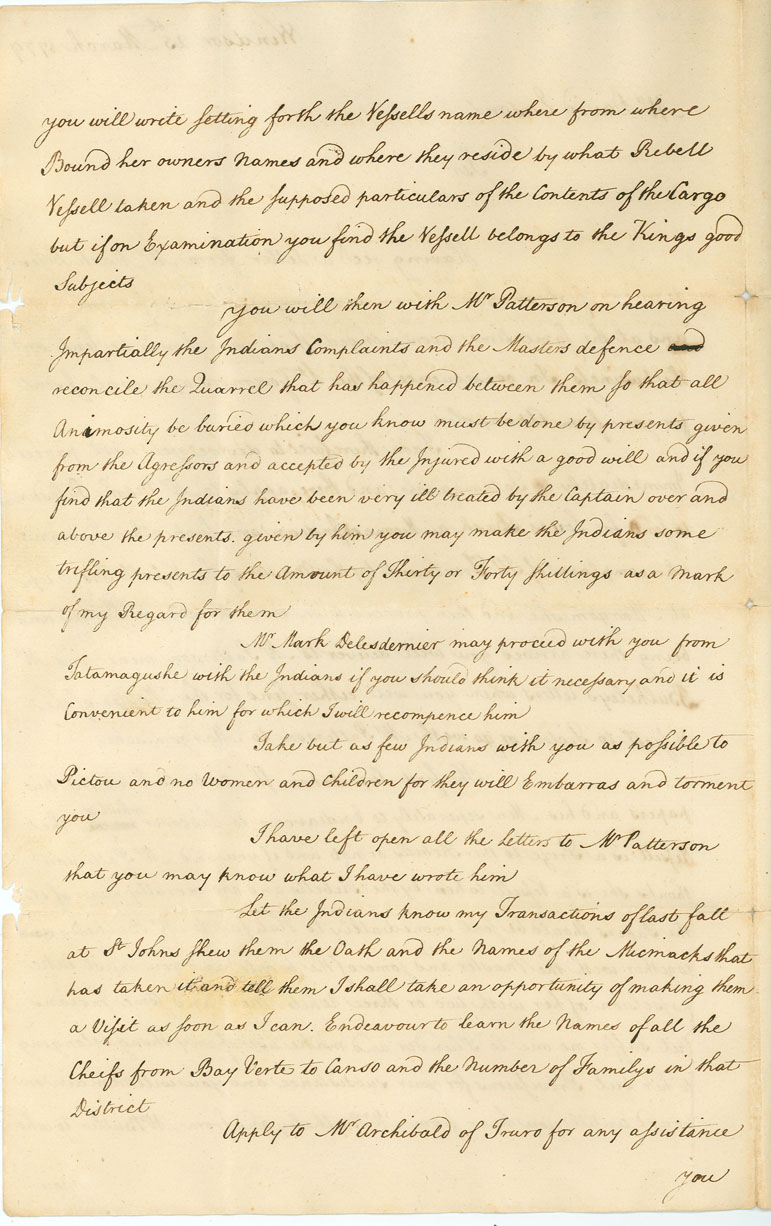 you will write setting forth the Vessells name where from where
Bound her owners Names and where they reside by what Rebell
Vessell taken and the supposed particulars of the Contents of the Cargo
but if on Examination you find the Vessell belongs to the Kings good
Subjects
you will then with Mr Patterson on hearing
Impartially the Indians Complaints and the Masters defence and
reconcile the Quarrel that has happened between them so that all
Animosity be buried which you know must be done by presents given
from the Agressors and accepted by the Injured with a good will and if you
find that the Indians have been very ill treated by the Captain over and
above the presents. given by him you may make the Indians some
trifling presents to the Amount of Thirty or Forty shillings as a Mark
of my Regard for them
Mr Mark Delesdernier may proceed with you from
Tatamagushe with the Indians if you should think it necessary and it is
Convenient to him for which I will recompence him
Take but as few Indians with you as possible to
Pictou and no Women and Children for they will Embarras and torment
you
I have left open all the Letters to Mr Patterson
that you may know what I have wrote him
Let the Indians know my Transactions of last fall
at St Johns shew them the Oath and the Names of the Micmacks that
has taken it and tell them I shall take an opportunity of making them
a Visit as soon as I can. Endeavour to learn the Names of all the
Cheifs from Bay Verte to Canso and the Number of Familys in that
District
Apply to Mr Archibald of Truro for any assistance
you